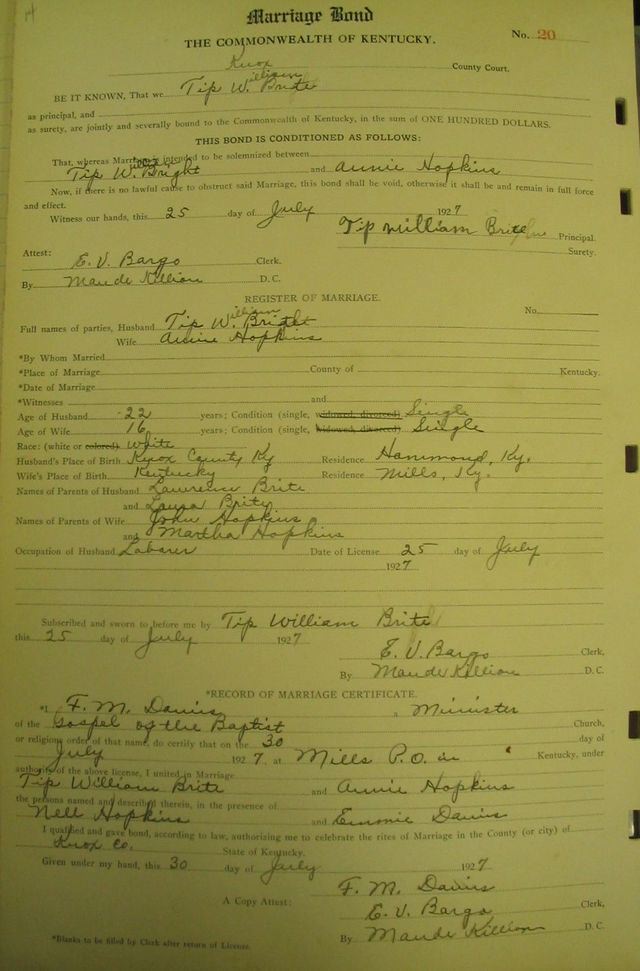 14
Marriage Bond
THE COMMONWEALTH OF KENTUCKY.
No. 20
Knox County Court.
BE IT KNOWN, That we Tip William Brite
as principal, and
as surety, are jointly and severally bound to the Commonwealth of Kentucky, in the sum of ONE HUNDRED DOLLARS.
THIS BOND IS CONDITIONED AS FOLLOWS:
That, whereas Marriage is intended to be solemnized between
Tip William Bright and Annie Hopkins
Now, if there is no lawful cause to obstruct said Marriage, this bond shall be void, otherwise it shall be and remain in full force
and effect.
Witness our hands, this 25 day of July 1927
Tip William Brite Principal.
Surety.
Attest:
E. V. Bargo Clerk.
By Maude Killion D. C.
REGISTER OF MARRIAGE.
No.
Full names of parties, Husband Tip William Bright
Wife Annie Hopkins
*By Whom Married
*Place of Marriage County of Kentucky.
*Date of Marriage
*Witnesses and
Age of Husband 22 years; Condition (single, widowed, divorced) Single
Age of Wife 16 years; Condition (single, widowed, divorced) Single
Race: (white or colored) White
Husband's Place of Birth Knox County Ky Residence Hammond, Ky.
Wife's Place of Birth Kentucky Residence Mills, Ky.
Names of Parents of Husband Lawrence Brite
and Laura Brite
Names of Parents of Wife John Hopkins
and Martha Hopkins
Occupation of Husband Laborer Date of License 25 day of July
1927
Subscribed and sworn to before me by Tip William Brite
this 25 day of July 1927
E. V. Bargo Clerk,
By Maude Killion D. C.
*RECORD OF MARRIAGE CERTIFICATE.
*I F. M. Davis a Minister
of the Gospel of the Baptist Church,
or religious order of that name, do certify that on the 30 day of
July 1927, at Mills P.O. in Kentucky, under
authority of the above license, I united in Marriage
Tip William Brite and Annie Hopkins
the persons named and described therein, in the presence of
Nell Hopkins and Emmie Davis
I qualified and gave bond, according to law, authorizing me to celebrate the rites of Marriage in the County (or city) of
Knox Co. State of Kentucky.
Given under my hand, this 30 day of July 1927
F. M. Davis
A Copy Attest: E. V. Bargo Clerk,
By Maude Killion D. C.
*Blanks to be filled by Clerk after return of License.